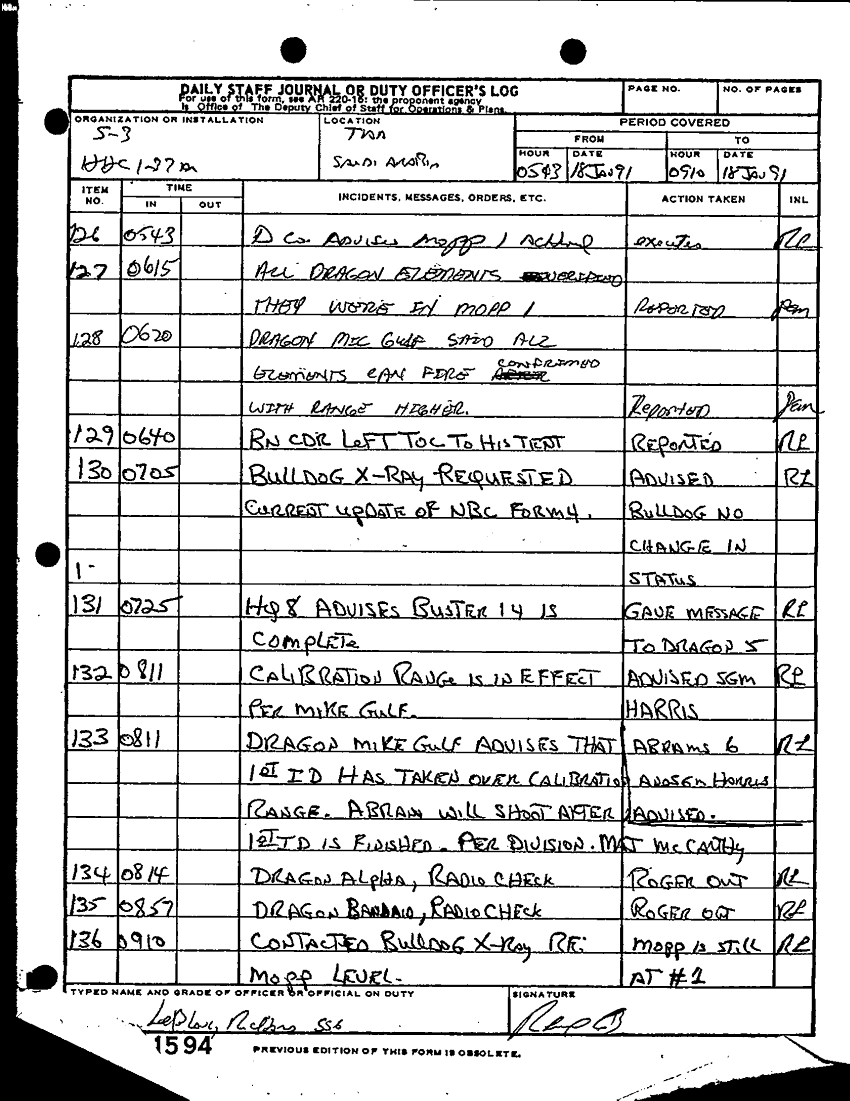 DAILY STAFF JOURNAL OR DUTY OFFICER'S LOG
For use of this form, see AR 220-15: the proponent agency
is Office of The Deputy Chief of Staff for Operations & Plans.
PAGE NO. NO. OF PAGES
ORGANIZATION OR INSTALLATION
S-3
HHC 1-37
LOCATION
TAA
SAUDI ARABIA
PERIOD COVERED
FROM TO
HOUR DATE HOUR DATE
0543 18 JAN 91 0910 18 JAN 91
ITEM NO. TIME INCIDENTS, MESSAGES, ORDERS, ETC. ACTION TAKEN INL
IN OUT
126 0543 D Co. ADVISES MOPP 1 executes RL
127 0615 ALL DRAGON ELEMENTS
THEY WERE IN MOPP 1 REPORTED
128 0620 DRAGON MIC GULF SAID ALL
ELEMENTS CAN FIRE CONFIRMED
WITH RANGE HIGHER. Reported
129 0640 BN CDR LEFT TOC TO HIS TENT REPORTED RL
130 0705 BULLDOG X-RAY REQUESTED ADVISED RL
CURRENT UPDATE OF NBC FORM 4. BULLDOG NO
CHANGE IN
1- STATUS
131 0725 HQ 8 ADVISES BUSTER 14 IS GAVE MESSAGE RL
COMPLETE TO DRAGON 5
132 0811 CALIBRATION RANGE IS IN EFFECT ADVISED SGM RL
PER MIKE GULF. HARRIS
133 0811 DRAGON MIKE GULF ADVISES THAT ABRAMS 6 RL
1ST ID HAS TAKEN OVER CALIBRATION AND SGM HARRIS
RANGE. ABRAM WILL SHOOT AFTER ADVISED.
1ST ID IS FINISHED. PER DIVISION. MAJ McCARTHY
134 0814 DRAGON ALPHA, RADIO CHECK ROGER OUT RL
135 0857 DRAGON BANDAID, RADIO CHECK ROGER OUT RL
136 0910 CONTACTED BULLDOG X-RAY RE: MOPP IS STILL RL
MOPP LEVEL. AT #1
TYPED NAME AND GRADE OF OFFICER OR OFFICIAL ON DUTY SIGNATURE
SSG
1594 PREVIOUS EDITION OF THIS FORM IS OBSOLETE.